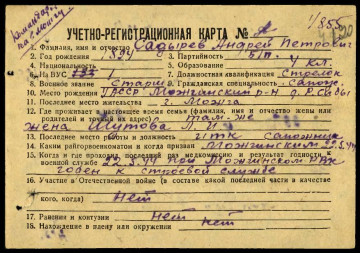 1/355
УЧЕТНО-РЕГИСТРАЦИОННАЯ КАРТА №
1. Фамилия, имя и отчество Садырев Андрей Петрович
2. Год рождения 1894 3. Партийность б/п
4. Национальность 5. Образование 4 кл.
6. На ВУС 133 7. Должностная квалификация Стрелок
8. Военное звание 9. Гражданская специальность
10. Место рождения УАССР Можгинский р-н
11. Последнее место жительства г. Можга
12. Где проживает в настоящее время семья (фамилия, имя и отчество жены или
родителей и других их адрес) там-же
жена Шитова
13. Последнее место работы и должность сапожник
14. Каким райгорвоенкоматом и когда призван Можгинским
15. Когда и где проходил раз медкомиссию и результат годности к
военной службе 22.5.44 при Можгинском РВК
годен к строевой службе
16. Участие в Отечественной войне (в составе какой последней части и в качестве
кого, когда) Нет
17. Ранения и контузии Нет
18. Нахождение в плену или окружении нет